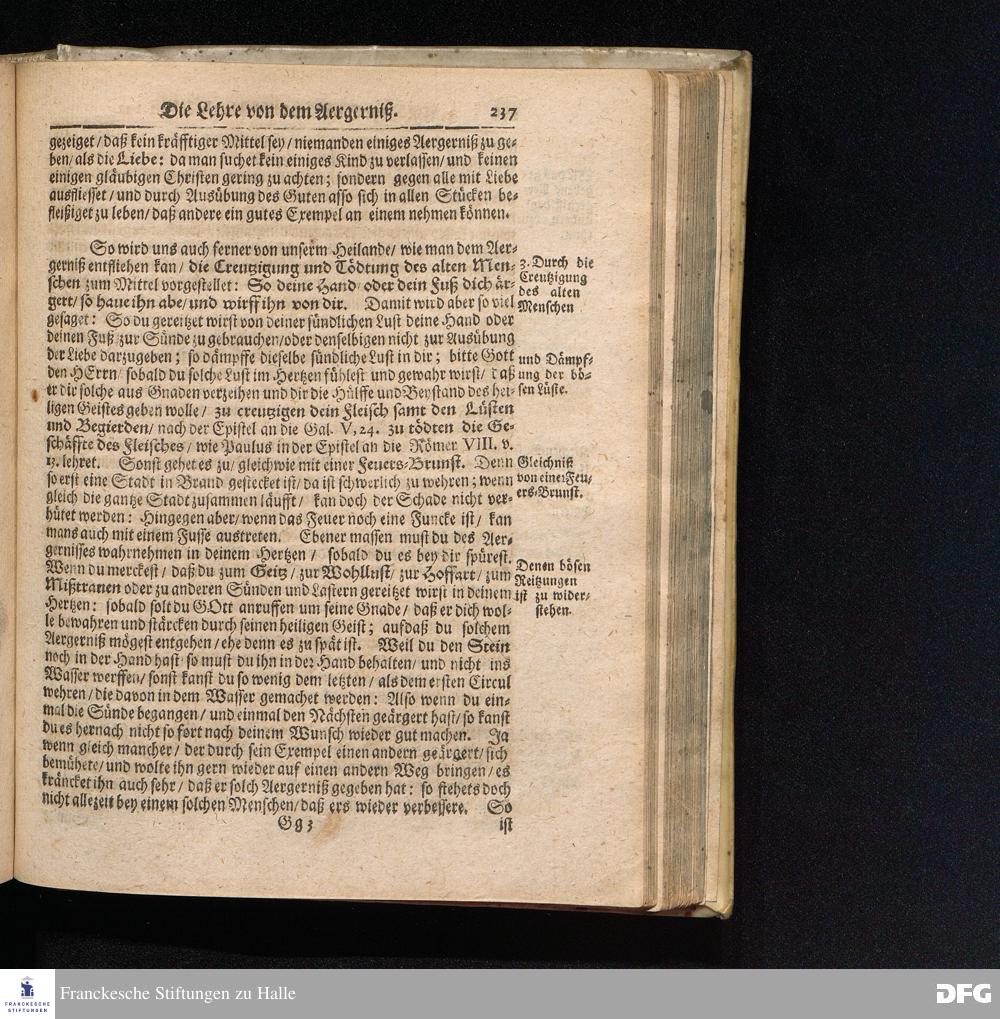 Die Lehre von dem Aergerniß. 237
gezeiget/ daß kein kräfftiger Mittel sey/ niemanden einiges Aergerniß zu ge-
ben/ als die Liebe: da man suchet kein einiges Kind zu verlassen/ und keinen
einigen gläubigen Christen gering zu achten; sondern gegen alle mit Liebe
ausfliesset/ und durch Ausübung des Guten also sich in allen Stücken be-
fleißiget zu leben/ daß andere ein gutes Exempel an einem nehmen können.
So wird uns auch ferner von unserm Heilande/ wie man dem Aer-
gerniß entfliehen kan/ die Creutzigung und Tödtung des alten Men-
schen zum Mittel vorgestellet: So deine Hand oder dein Fuß dich är-
gert/ so haue ihn abe/ und wirff ihn von dir. Damit wird aber so viel
gesaget: So du gereitzet wirst von deiner sündlichen Lust deine Hand oder
deinen Fuß zur Sünde zu gebrauchen/ oder denselbigen nicht zur Ausübung
der Liebe darzugeben; so dämpffe dieselbe sündliche Lust in dir; bitte Gott
den HErrn/ sobald du solche Lust im Hertzen fühlest und gewahr wirst/ daß
er dir solche aus Gnaden verzeihen und dir die Hülffe und Beystand des hei-
ligen Geistes geben wolle/ zu creutzigen dein Fleisch samt den Lüsten
und Begierden/ nach der Epistel an die Gal. V, 24. zu tödten die Ge-
schäffte des Fleisches/ wie Paulus in der Epistel an die Römer VIII. v.
13. lehret. Sonst gehet es zu/ gleichwie mit einer Feuers-Brunst. Denn
so erst eine Stadt in Brand gestecket ist/ da ist schwerlich zu wehren; wenn
gleich die gantze Stadt zusammen läufft/ kan doch der Schade nicht ver-
hütet werden: Hingegen aber/ wenn das Feuer noch eine Funcke ist/ kan
mans auch mit einem Fusse austreten. Ebener massen must du des Aer-
gernisses wahrnehmen in deinem Hertzen/ sobald du es bey dir spürest.
Wenn du merckest/ daß du zum Geitz/ zur Wohllust/ zur Hoffart/ zum
Mißtrauen oder zu anderen Sünden und Lastern gereitzet wirst in deinem
Hertzen: sobald solt du GOtt anruffen um seine Gnade/ daß er dich wol-
le bewahren und stärcken durch seinen heiligen Geist; aufdaß du solchem
Aergerniß mögest entgehen/ ehe denn es zu spät ist. Weil du den Stein
noch in der Hand hast so must du ihn in der Hand behalten/ und nicht ins
Wasser werffen/ sonst kanst du so wenig dem letzten/ als dem ersten Circul
wehren/ die davon in dem Wasser gemachet werden: Also wenn du ein-
mal die Sünde begangen/ und einmal den Nächsten geärgert hast/ so kanst
du es hernach nicht so fort nach deinem Wunsch wieder gut machen. Ja
wenn gleich mancher/ der durch sein Exempel einen andern geärgert/ sich
bemühete/ und wolte ihn gern wieder auf einen andern Weg bringen/ es
kräncket ihn auch sehr/ daß er solch Aergerniß gegeben hat: so stehets doch
nicht allezeit bey einem solchen Menschen/ daß ers wieder verbessere. So
Gg 3 ist
3. Durch die
Creutzigung
des alten
Menschen
und Dämpf-
ung der bö-
sen Lüste.
Gleichniß
von einer Feu-
ers-Brunst.
Denen bösen
Reitzungen
ist zu wider-
stehen.
FRANCKESCHE
STIFTUNGEN
Franckesche Stiftungen zu Halle
DFG